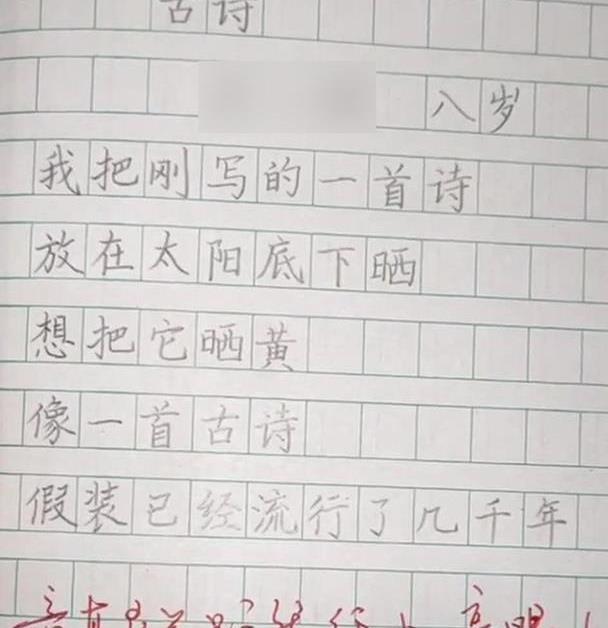 古诗
八岁
我把刚写的一首诗
放在太阳底下晒
想把它晒黄
像一首古诗
假装已经流行了几千年